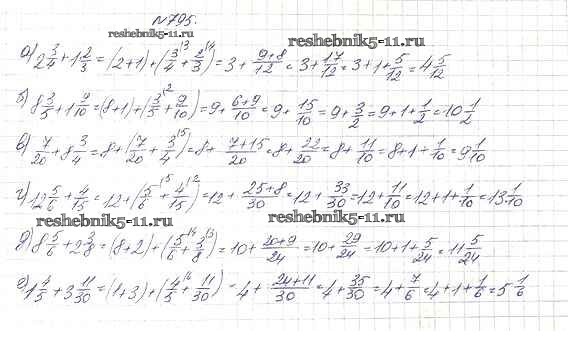 N795.
reshebnik5-11.ru
reshebnik5-11.ru
а) 2 3/4 + 1 2/3 = (2+1) + (3/4 \3 + 2/3 \4) = 3 + (9+8)/12 = 3 + 17/12 = 3+1+ 5/12 = 4 5/12
б) 8 3/5 + 1 9/10 = (8+1) + (3/5 \2 + 9/10) = 9 + (6+9)/10 = 9 + 15/10 = 9 + 3/2 = 9+1+ 1/2 = 10 1/2
в) 7/20 + 8 3/4 = 8 + (7/20 + 3/4 \5) = 8 + (7+15)/20 = 8 + 22/20 = 8 + 11/10 = 8+1+ 1/10 = 9 1/10
г) 12 5/6 + 4/15 = 12 + (5/6 \5 + 4/15 \2) = 12 + (25+8)/30 = 12 + 33/30 = 12 + 11/10 = 12+1+ 1/10 = 13 1/10
reshebnik5-11.ru
reshebnik5-11.ru
д) 8 5/6 + 2 3/8 = (8+2) + (5/6 \4 + 3/8 \3) = 10 + (20+9)/24 = 10 + 29/24 = 10+1+ 5/24 = 11 5/24
е) 1 4/5 + 3 11/30 = (1+3) + (4/5 \6 + 11/30) = 4 + (24+11)/30 = 4 + 35/30 = 4 + 7/6 = 4+1+ 1/6 = 5 1/6
reshebnik5-11.ru